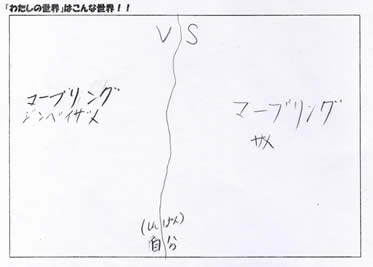 「わたしの世界」はこんな世界！！
VS
マーブリング
ジンベイザメ
マーブリング
サメ
(しんぱん)
自分